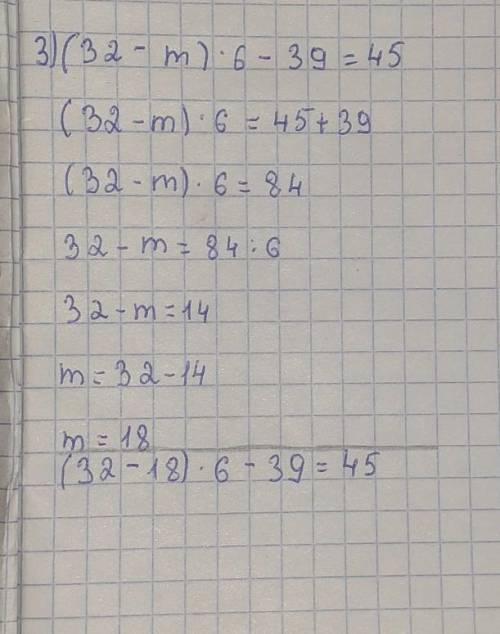 3) (32 - m) · 6 - 39 = 45
(32 - m) · 6 = 45 + 39
(32 - m) · 6 = 84
32 - m = 84 : 6
32 - m = 14
m = 32 - 14
m = 18
(32 - 18) · 6 - 39 = 45